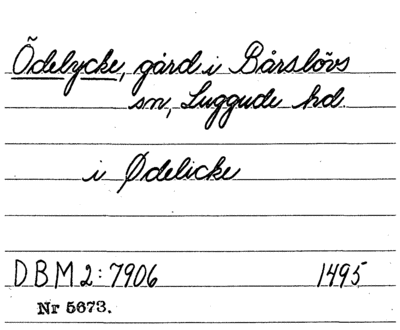 Ödelycke, gård i Bårslövs
sn, Luggude hd.
i Ødelicke
DBM 2:7906 1495
Nr 5673.